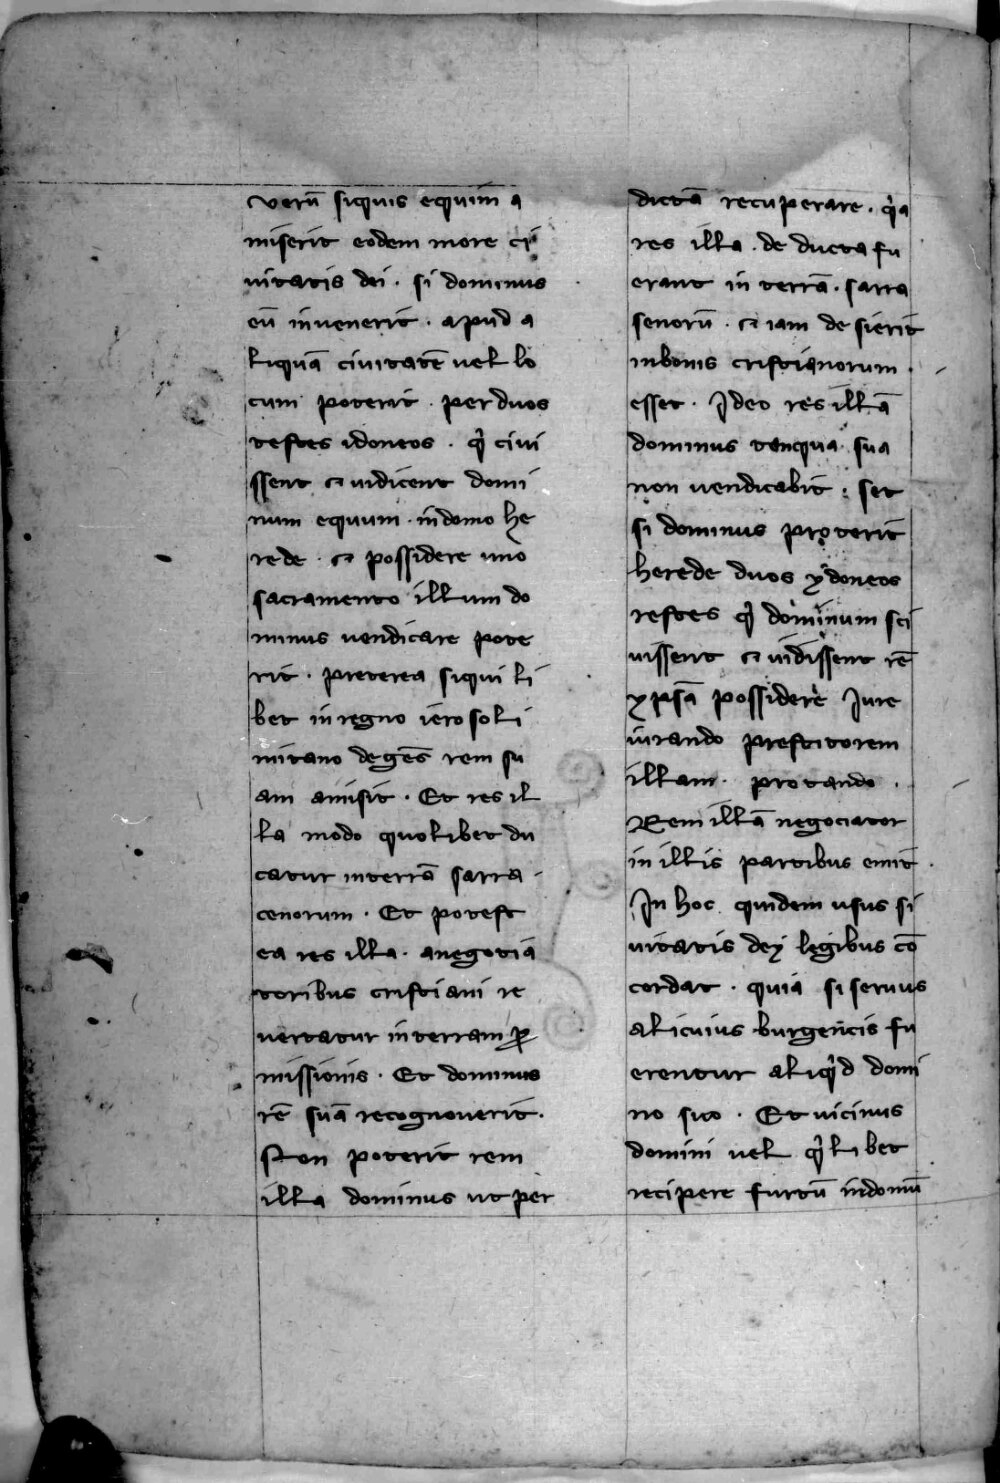 verū siquis equum a
miserit eodem more ci
uitatis dei . si dominus
eū inuenerit . apud a
liquā ciuitatē uel lo
cum poterit . per duos
testes idoneos . q̇ ciui
ssent et uidicent domi
num equum . in domo he
rede . et possidere uno
sacramento illum do
minus uendicare pote
rit . preterea siqui li
bet in regno ierosoli
mitano degēs rem su
am amisit . Et res il
la modo quolibet du
catur interrā sarra
cenorum . Et potest
ea res illa . anegotia
toribus cristiani re
uertatur interram ꝓ
missionis . Et dominus
rē suā recognouerit .
Non poterit rem
illa dominus ut per
dictā recuperare . q̇a
res illa . de ducta fu
erant in terrā . sarra
senorū . et iam de sierit
inbonis cristianorum .
esset . Ideo res illā
dominus tanqua sua
non uendicabit . set
si dominus proterit
herede duos ydoneos
restes q̇ dominum sci
uissent et uidissent rē
ypsā possidere Iure
iurando prestitorem
illam . protando .
Rem illā negociator
in illis partibus emit .
In hoc quidem usus si
uitatis dey legibus cō
cordat . quia si seruus
alicuius burgēcis fu
erentur aliq̇d domi
no suo . Et uicinus
domini uel q̇libet
recipere furtū indomū